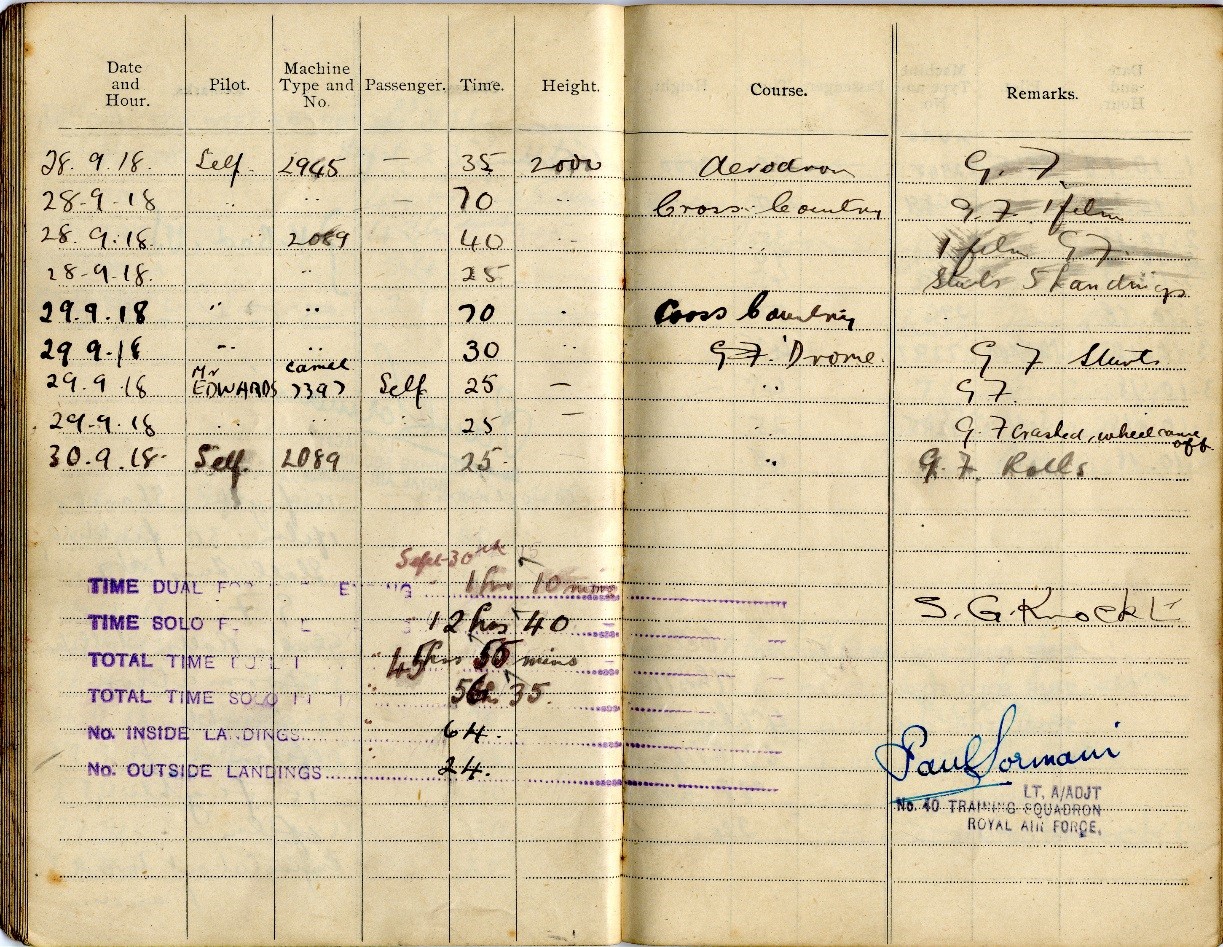 Date and Hour. Pilot. Machine Type and No. Passenger. Time. Height. Course. Remarks.
28.9.18. Self. 2965 — 35 2000 Aerodrom G. F.
28-9-18 .. .. — 70 .. Cross-Country G F. 1 film
28.9.18. .. 2089 40 .. .. 1 film G F.
28-9-18. .. 25 Stunts 5 Landings
29.9.18 .. .. 70 . Cross Country
29 9.18 .. .. 30 G.F. 'Drome. G F Stunts
29.9.18 Mr EDWARDS Camel 7397 Self 25 — .. G F.
29-9-18 .. .. .. 25 — .. G. F crashed, wheel came off.
30.9.18- Self. 2089 25- .. G. F. Rolls.
Sept-30th
TIME DUAL 1 hr 10 mins
TIME SOLO 12 hrs 40
S. G. Knock Lt
TOTAL TIME 45 hrs 55 mins
TOTAL TIME SOLO 56h 35.
No. INSIDE LANDINGS 64.
No. OUTSIDE LANDINGS 24.
Paul Sormani
LT, A/ADJT
No. 40 TRAINING SQUADRON
ROYAL AIR FORCE,